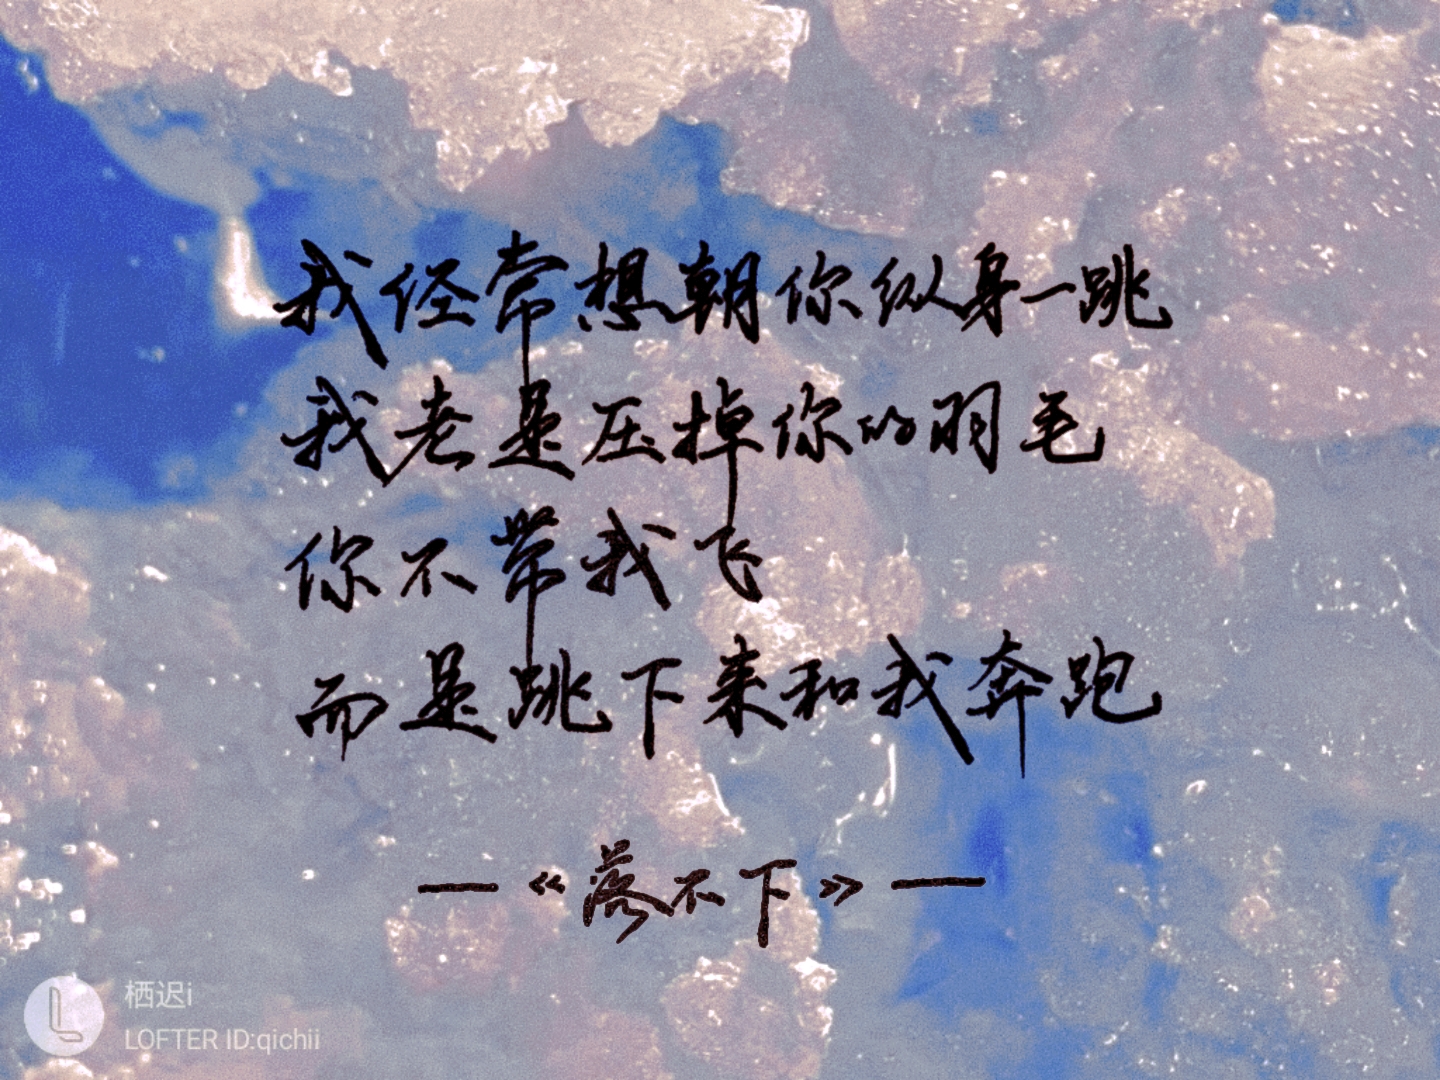 我经常想朝你纵身一跳
我老是压掉你的羽毛
你不带我飞
而是跳下来和我奔跑
—《落不下》—
栖迟i
LOFTER ID:qichii